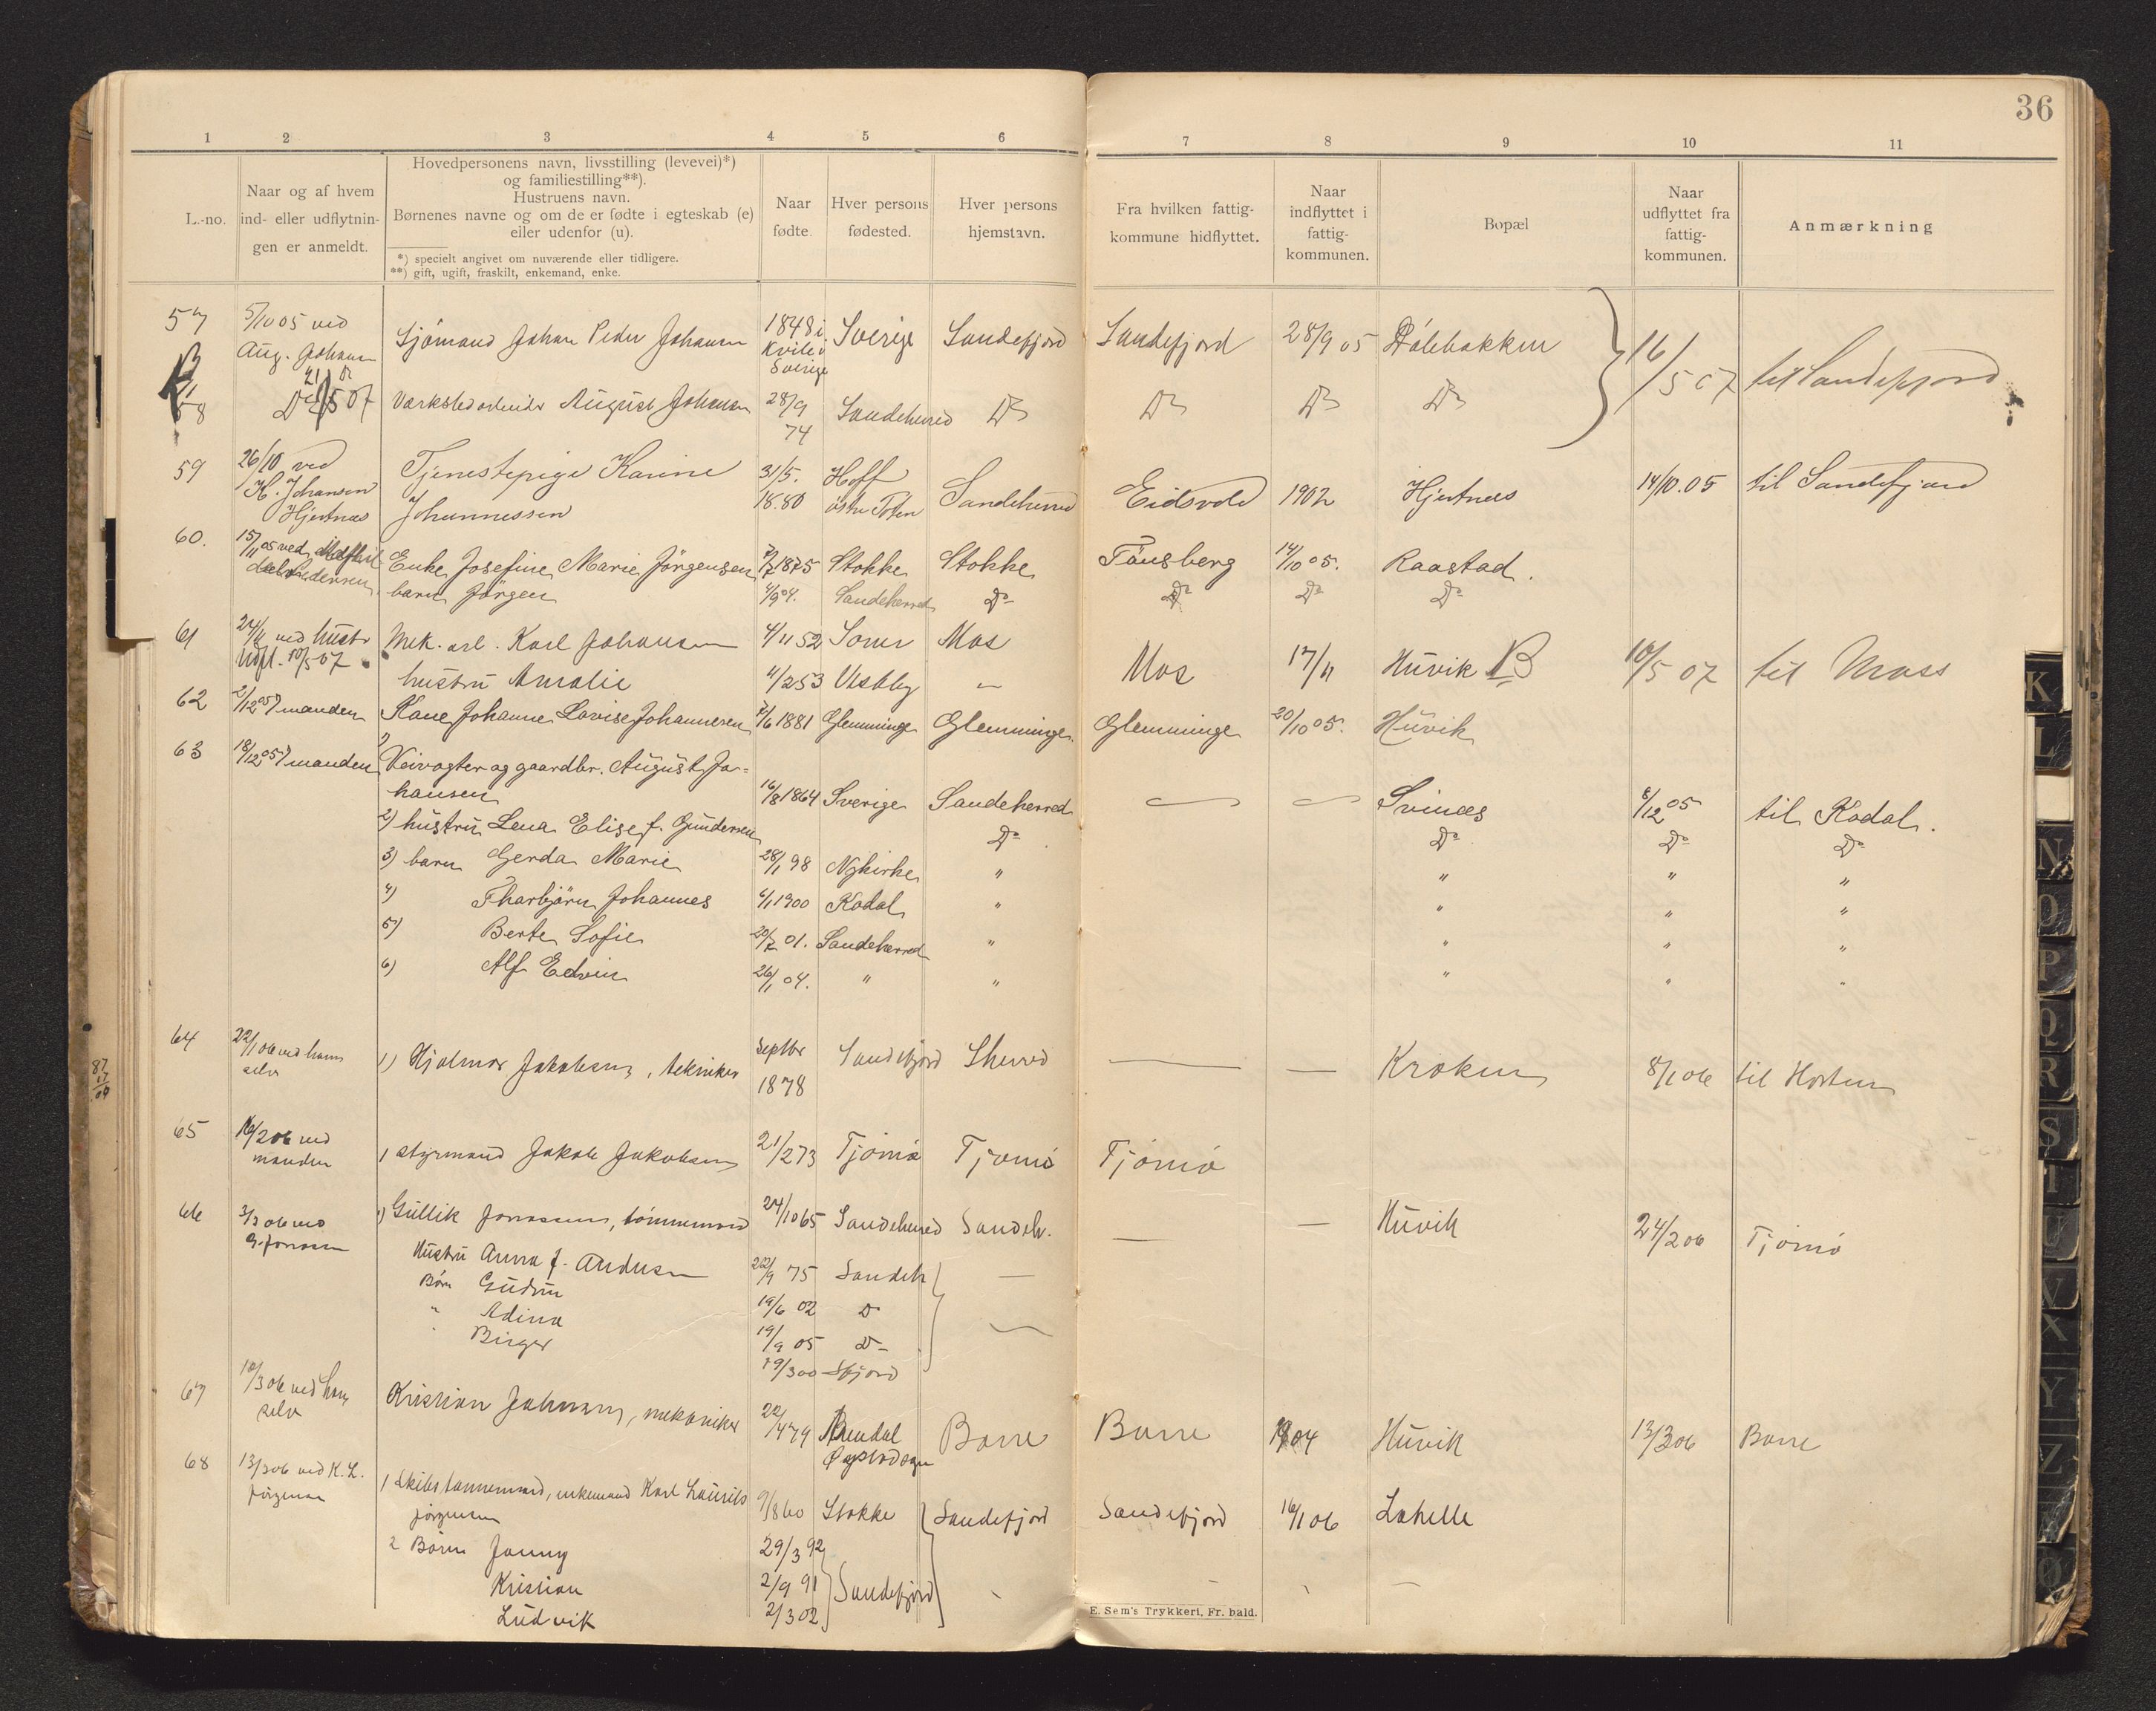 36
1 2 3 4 5 6 7 8 9 10 11
L.-no.
Naar og af hvem
ind- eller udflytnin-
gen er anmeldt.
Hovedpersonens navn, livsstilling (levevei)*)
og familiestilling**).
Hustruens navn.
Børnenes navne og om de er fødte i egteskab (e)
eller udenfor (u).
*) specielt angivet om nuværende eller tidligere.
**) gift, ugift, fraskilt, enkemand, enke.
Naar
fødte.
Hver persons
fødested.
Hver persons
hjemstavn.
Fra hvilken fattig-
kommune hidflyttet.
Naar
indflyttet i
fattig-
kommunen.
Bopæl
Naar
udflyttet fra
fattig-
kommunen.
Anmærkning
57 5/10 05 ved Sjömand Johan Peder Johansen 1848 i Sverige Sandefjord Sandefjord 28/9 05 16/5 07 til Sandefjord
Aug. Johansen Kville i
Sverige
58 Do 21/5 07 Værkstedarbeider August Johansen 28/9 74 Sandeherred Do Do Do Do
59 26/10 ved Tjenestepige Karine 31/5. Hoff Sandeherred Eidsvold 1902 Hjertnæs 14/10.05 til Sandefjord
K. Johansen Johannessen 18.80 östre Toten
Hjertnæs
60. 15/11 05 ved Enke Josefine Marie Jörgensen 7/7 1875 Stokke Stokke Tönsberg 14/10 05. Raastad.
barn Jörgen 4/9 04. Sandeherred Do Do Do Do
61 24/11 ved hustr Mek. arb. Karl Johansen 4/11 52 Soner Mos Mos 17/11 Huvik B 10/5 07 til Moss
Udfl. 10/5 07 hustru Amalie 4/2 53 Vestby —
62 2/12 05 v manden Kone Johanne Lovise Johannesen 7/6 1881 Glemminge Glemminge. Glemminge 20/10 05. Huvik
63 18/12 05 v manden 1) Veivogter og gaardbr. August Jo-
hansen 16/8 1864 Sverige Sandeherred — — Svinæs 8/12 05 til Kodal.
2) hustru Lena Elise f. Gundersen Do Do Do Do
3) barn Gerda Marie 28/1 98 Nykirke " " " "
4) Thorbjörn Johannes 4/1 1900 Kodal " " " "
5) Berte Sofie 20/7 01. Sandeherred " " " "
6) Alf Edvin 26/1 04. " " " " "
87
17
09
64 22/1 06 ved ham 1) Hjalmar Jakobsen, tekniker Septbr Sandefjord Sherred — — Kroken 8/1 06 til Horten
selv 1878
65 16/2 06 ved 1 styrmand Jakob Jakobsen 21/2 73 Tjömö Tjömö Tjömö
manden
66 3/3 06 ved 1) Gullik Jonassen, tömmermand 24/10 65 Sandeherred Sandeh. — — Huvik 24/2 06 Tjömö
G. Jonassen Hustru Anna f. Andersen 22/9 75 Sandeh —
Börn Gudrun 19/6 02 Do
" Adina 19/9 05 Do —
" Birger 19/3 00 Sfjord
67 10/3 06 ved ham Kristian Johnsen, mekaniker 22/4 79 Arendal Borre Borre 1904 Huvik 13/3 06 Borre
selv
68 13/3 06 ved K. L. 1 Skibstømmermand, enkemand Karl Laurits 9/8 60 Stokke Sandefjord Sandefjord 16/1 06 Lahelle
Jörgensen Jörgensen
2 Börn Jonny 29/3 92 Sandefjord
Kristian 2/9 91
Ludvik 2/3 02
E. Sem's Trykkeri, Fr. hald.
K
L
N
O
P
Q
R
S
T
U
V
X
Y
Z
Æ
Ø